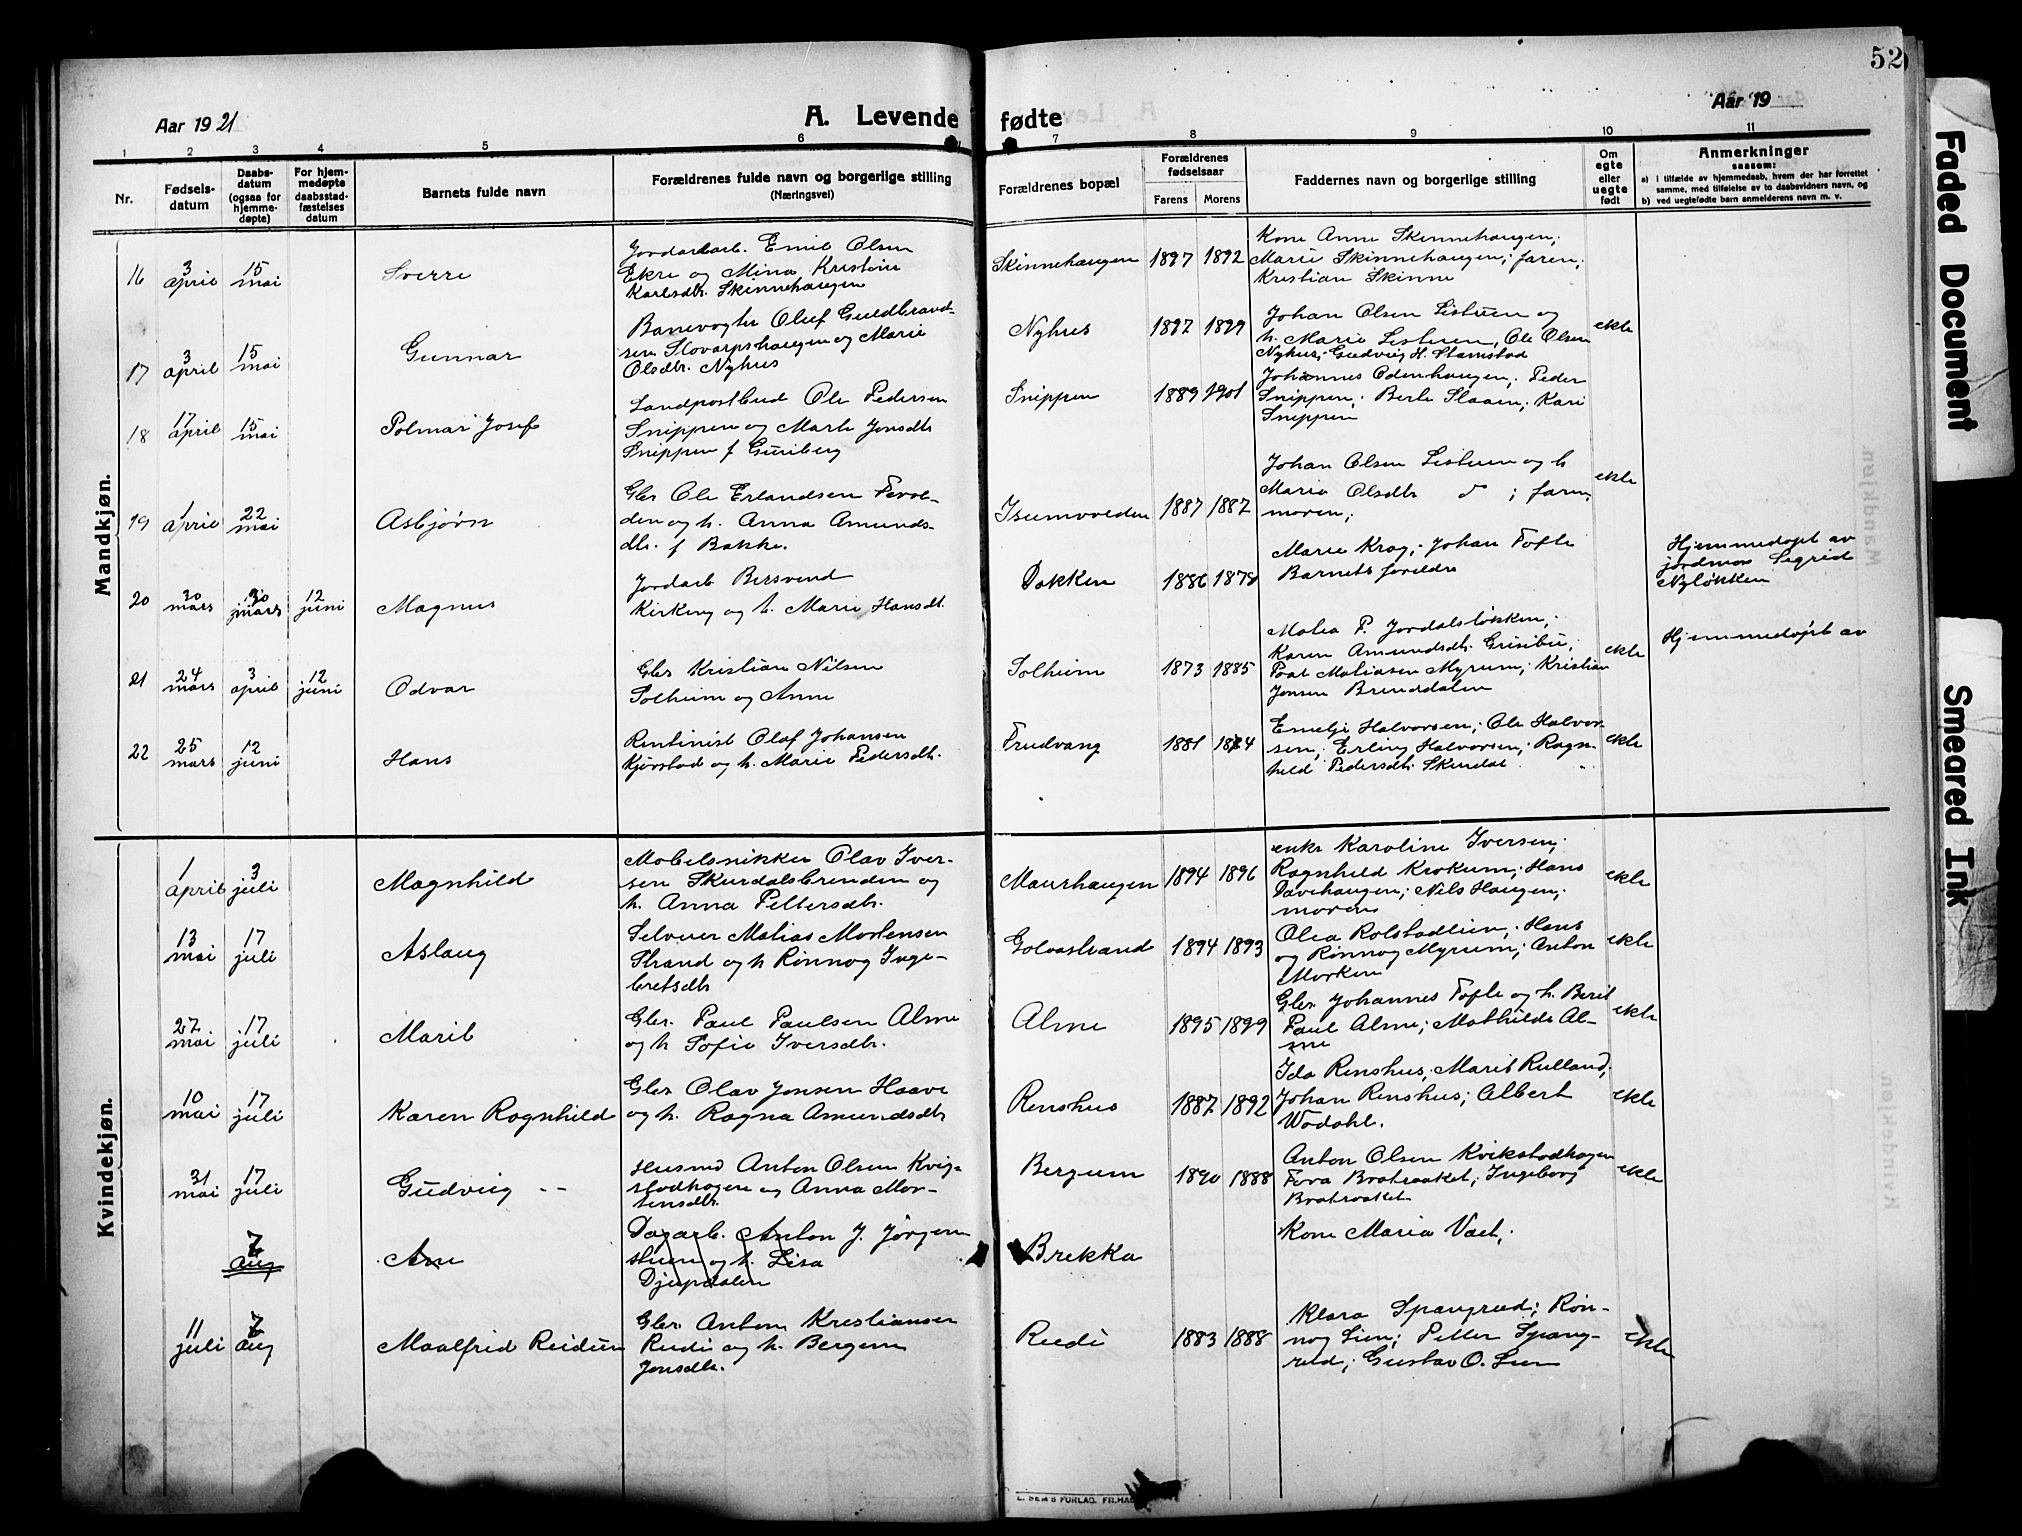 52
Aar 1921
A. Levende fødte
Aar 19
1 2 3 4 5 6 7 8 9 10 11
Nr.
Fødsels-
datum
Daabs-
datum
(ogsaa for
hjemme-
døpte)
For hjem-
medøpte
daabsstad-
fæstelses
datum
Barnets fulde navn
Forældrenes fulde navn og borgerlige stilling
(Næringsvei)
Forældrenes bopæl
Forældrenes
fødselsaar
Farens Morens
Faddernes navn og borgerlige stilling
Om
egte
eller
uegte
født
Anmerkninger
saasom:
a) i tilfælde av hjemmedaab, hvem der har forrettet
samme, med tilføielse av to daabsvidners navn, og
b) ved uegtefødte barn anmelderens navn m. v.
Mandkjøn.
16 3 april 15 mai Sverre
Jordarb. Emil Olsen
Ekre og Mina Kristine
Karlsdtr. Skinnehaugen
Skinnehaugen 1897 1892
Kone Anne Skinnehaugen;
Marie Skinnehaugen; faren;
Kristian Skinne
17 3 april 15 mai Gunnar
Banevogter Oluf Guldbrand-
sen Slovarpshaugen og Marie
Olsdtr. Nyhus
Nyhus 1897 1899
Johan Olsen Listuen og
h. Marie Listuen, Ole Olsen
Nyhus, Gudvig H. Stamstad
ekte
18 17 april 15 mai Polmar Josef
Landpostbud Ole Pedersen
Snippen og Marte Jonsdtr
Snippen f Guriberg
Snippen 1889 1901
Johannes Odenhaugen; Peder
Snippen; Berte Slaaen; Kari
Snippen
19 1 april 22 mai Asbjørn
Gbr Ole Erlandsen Fevol-
den og h. Anna Amunds-
dtr. f Bakke.
Isumvolden 1887 1887
Johan Olsen Listuen og h
Marie Olsdtr do; faren,
moren;
ekte
20 30 mars 30 mars 12 juni Magnus
Jordarb Bersvend
Kirkeng og h. Marie Hansdt.
Dokken 1886 1878
Marie Krog; Johan Tofte
Barnets foreldre
Hjemmedøpt av
jordmor Sigrid
Nyløkken
21 24 mars 3 april 12 juni Odvar
Gbr Kristian Nilsen
Solheim og Anne
Solheim 1873 1885
Malea P. Jordalsløkken;
Karen Amundsdtr. Grisibu;
Paal Matiasen Myrum; Kristian
Jonsen Brenddalen
ekte
Hjemmedøpt av
22 25 mars 12 juni Hans
Rentinist Olaf Johansen
Kjørstad og h. Marie Pedersdtr.
Trudvang 1881 1884
Emelje Halvorsen; Ole Halvor-
sen; Erling Halvorsen; Ragn-
hild Pedersdtr. Skurdal.
ekte
Kvindekjøn.
1 april 3 juli Magnhild
Møbelsnikker Olav Iver-
sen Skurdalsbrenden og
h. Anna Pettersdtr.
Maurhaugen 1894 1896
enke Karoline Iversen;
Ragnhild Krokum; Hans
Davehaugen; Nils Haugen;
moren
ekte
13 mai 17 juli Aslaug
Selveier Matias Mortensen
Strand og h Rønnog Inge-
bretsdtr
Golvastrand 1894 1893
Olea Rolstadlien; Hans
og Rønnog Myrum; Anton
Morken
ekte
27 mai 17 juli Marit
Gbr. Paul Paulsen Alme
og h Sofie Iversdtr.
Alme 1895 1899
Gbr. Johannes Tofte og h. Berit
Paul Alme; Mathilde Al-
me
ekte
10 mai 17 juli Karen Ragnhild
Gbr Olav Jonsen Haave
og h. Ragna Amundsdtr
Renshus 1887 1892
Ida Renshus; Marit Rulland;
Johan Renshus; Albert
Wodahl.
ekte
31 mai 17 juli Gudvig
Husmd Anton Olsen Kvig-
stadhagen og Anna Mor-
tensdtr.
Bergum 1890 1888
Anton Olsen Kvikstadhagen
Tora Bratvaaket; Ingeborg
Bratvaaket
ekte
7 Aug Ane
Dagarb. Anton J. Jørgen
stuen og h. Lisa
Djupdalen
Brekka
Kone Maria Vael;
11 juli 7 Aug Maalfrid Reidun
Gbr Anton Kristiansen
Rudi og h. Bergem
Jonsdtr.
Rudi 1883 1888
Klara Spangrud; Røn-
nog Lien; Petter Spang-
rud; Gustav O. Lien
ekte
E. SEM'S FORLAG. FR.HA
Faded Document
Smeared Ink